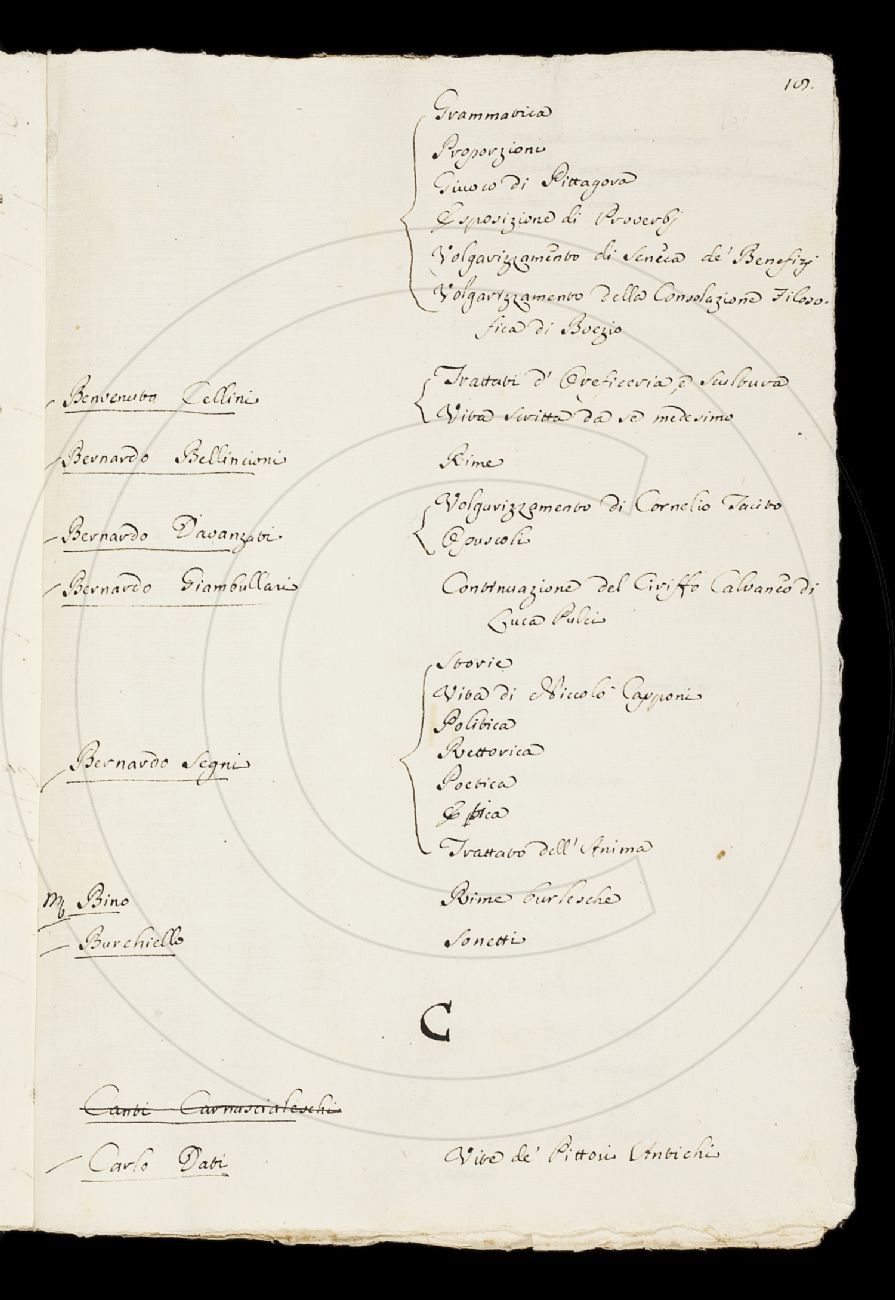 169.
Grammatica
Proporzioni
Giuoco di Pittagora
Esposizione di Proverbj
Volgarizzamento di Seneca de' Benefizj
Volgarizzamento della Consolazione Filoso-
fica di Boezio
Benvenuto Cellini Trattati d' Oreficeria, e Scultura
Vita scritta da se medesimo
Bernardo Bellincioni Rime
Volgarizzamento di Cornelio Tacito
Bernardo Davanzati Opuscoli
Bernardo Giambullari Continuazione del Ciriffo Calvaneo di
Luca Pulci
Storie
Vita di Niccolò Capponi
Politica
Rettorica
Bernardo Segni Poetica
Etica
Trattato dell' Anima
Bino Rime burlesche
Burchiello Sonetti
C
Canti Carnascialeschi
Carlo Dati Vite de' Pittori Antichi